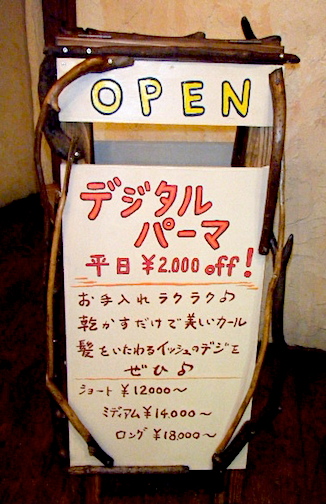 OPEN
デジタル
パーマ
平日 ¥2.000 off!
お手入れラクラク♪
乾かすだけで美しいカール
髪をいたわるイッシュのデジを
ぜひ♪
ショート ¥12000〜
ミディアム ¥14,000〜
ロング ¥18,000〜